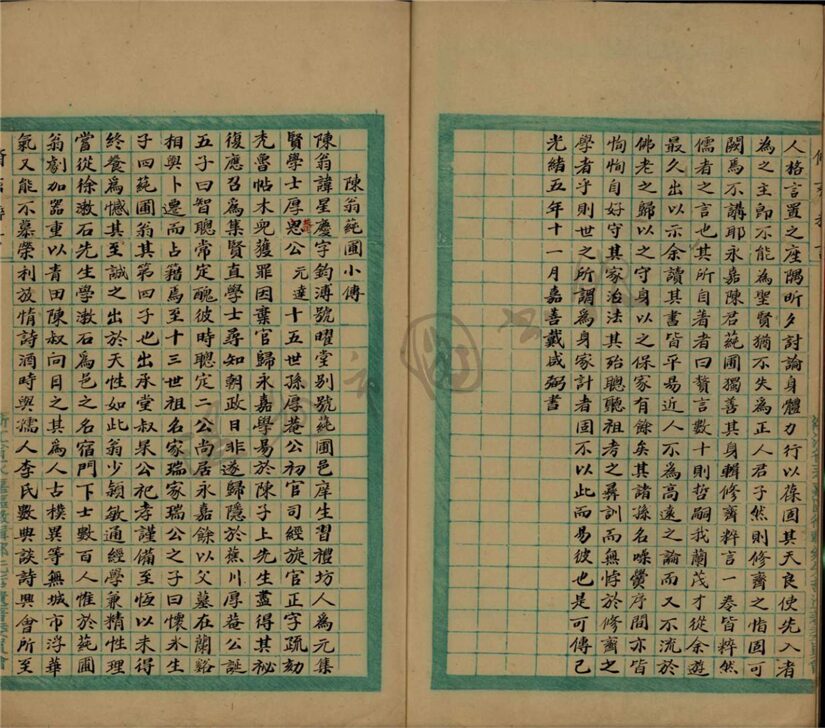 人格言置之座隅昕夕討論身體力行以葆固其天良使先入者
為之主即不能為聖賢猶不失為正人君子然則修齊之恉固可
闕焉不講耶永嘉陳君蒓圃獨善其身輯修齊粹言一卷皆粹然
儒者之言也其所自著者曰贅言數十則哲嗣我蘭茂才從余遊
最久出以示余讀其書皆平易近人不為高遠之論而又不流於
佛老之歸以之守身以之保家有餘矣其諸孫名噪黌序間亦皆
恂恂自好守其家治法其殆聰聽祖考之彞訓而無悖於修齊之
學者乎則世之所謂為身家計者固不以此而易彼也是可傳已
光緒五年十一月嘉善戴咸弼書
陳翁蒓圃小傳
陳翁諱星慶字鈞溥號曜堂別號蒓圃邑庠生習禮坊人為元集
賢學士厚公元達十五世孫厚菴公初官司經旋官正字疏劾
禿魯帖木兒獲罪因棄官歸永嘉學易於陳子上先生盡得其秘
復應召為集賢直學士尋知朝政日非遂歸隱於蕉川厚菴公誕
五子曰智聰常定醜彼時聰定二公尚居永嘉餘以父墓在蘭谿
相與卜遷而占籍焉至十三世祖名家瑞家瑞公之子曰懷氷生
子四蒓圃翁其第四子也出承堂叔杲公祀孝謹備至恆以未得
終養為憾其至誠之出於天性如此翁少穎敏通經學兼精性理
嘗從徐漱石先生學漱石為邑之名宿門下士數百人惟於蒓圃
翁劇加器重以青田陳叔向目之其為人古樸異等無城市浮華
氣又能不慕榮利放情詩酒時與孺人李氏數典談詩興會所至